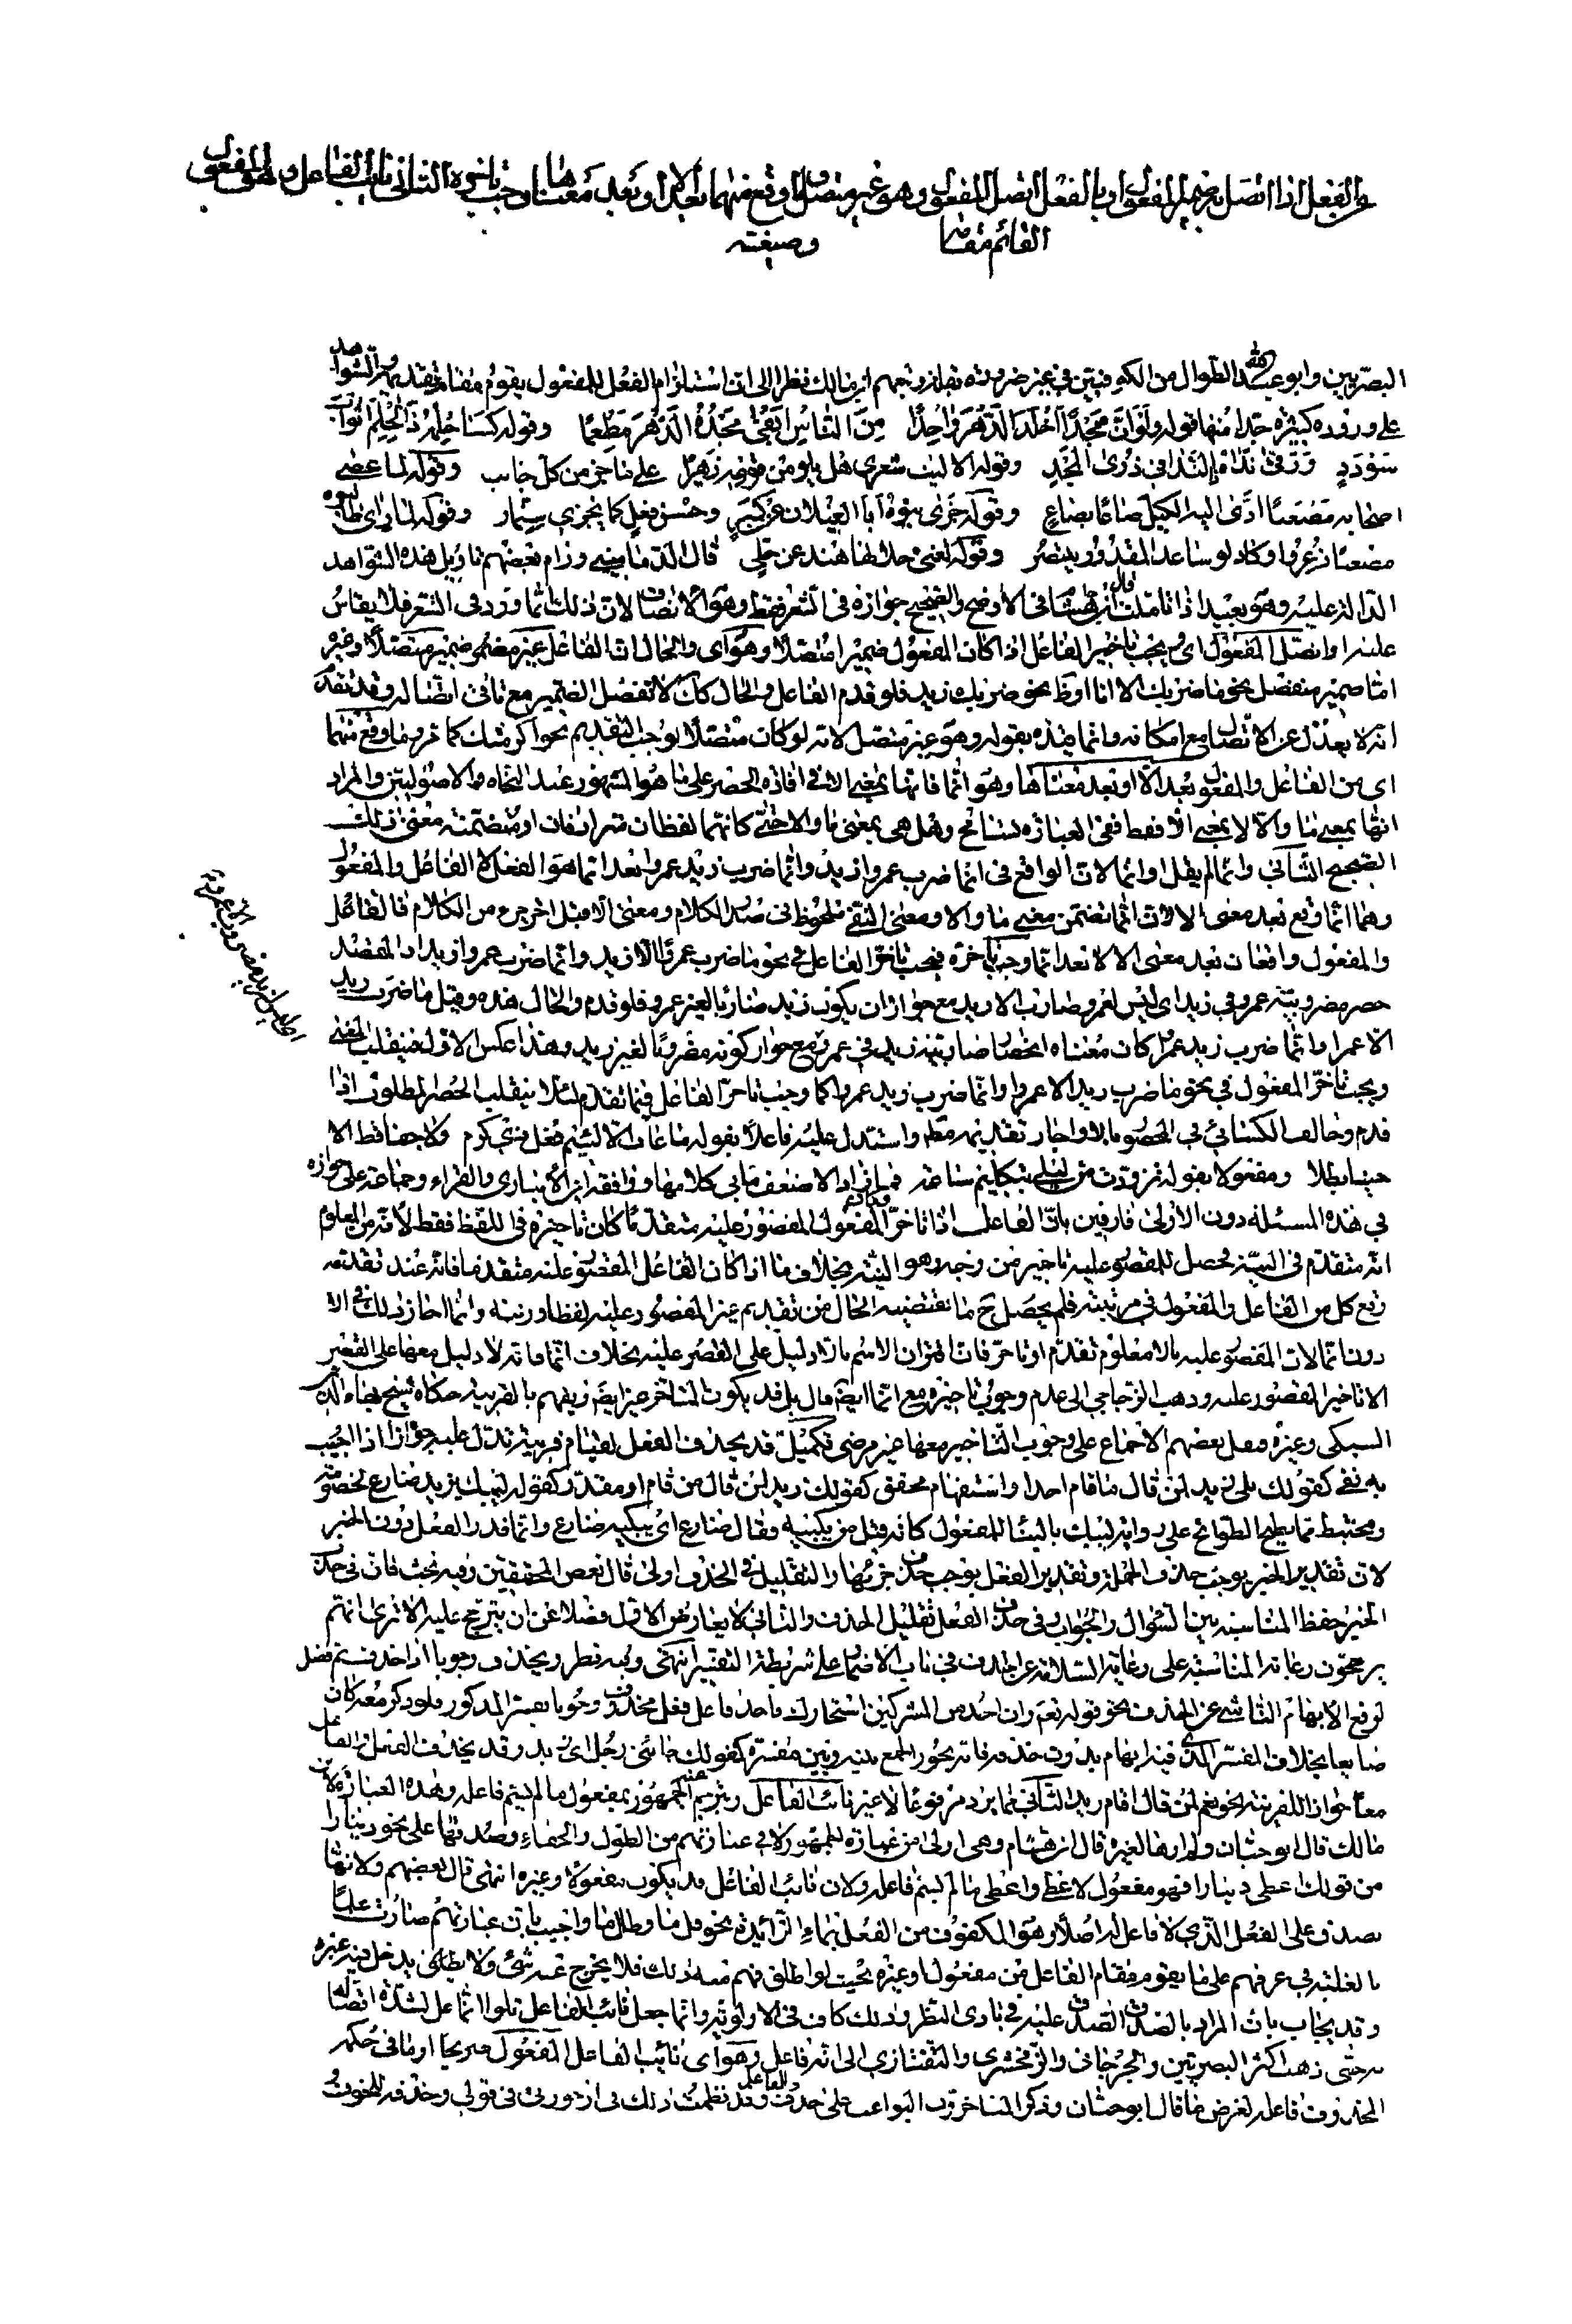 والفعل اذا اتصل ضمير المفعول او بالفعل اتصل المفعول وهو غير متصل او وقع منهما بعد الا او بعد معناها وجب تاخيره الثاني نائب الفاعل وهو المفعول
القائم مقامه وصيغته
البصريين وابو عبد الله الطوال من الكوفيين في غير ضرورة وتبعهم ابن مالك نظرا الى ان استلزام الفعل للمفعول يقوم مقام تقديمه والشواهد
على وروده كثيرة جدا منها قوله ولو ان مجدا اخلد الدهر واحدا من الناس ابقى مجده الدهر مطعما وقوله كسا حلمه ذا الحلم اثواب
سؤدد ورقى نداه ذا الندى في ذرى المجد وقوله الا ليت شعري هل يلومن قومه زهيرا على ما جر من كل جانب وقوله لما عصى
اصحابه مصعبا ادى اليه الكيل صاعا بصاع وقوله جزى بنوه ابا الغيلان عن كبر وحسن فعل كما يجزى سنمار وقوله لما راى طالبوه
مصعبا ذعروا وكاد لو ساعد المقدور ينتصر وقوله لعنى حلها هند عن حلي قال الدماميني ورام بعضهم تاويل هذه الشواهد
الدالة عليه وهو بعيد اذا تاملت قال ابن هشام في الاوضح والصحيح جوازه في الشعر فقط وهو الانصاف لان ذلك انما ورد في الشعر فلا يقاس
عليه او اتصل المفعول اي يجب تاخير الفاعل اذا كان المفعول ضميرا متصلا وهو اي والحال ان الفاعل غير مضمر ضمير متصل او غيره
اما ضمير منفصل نحو ما ضربك الا انا او ظ نحو ضربك زيد فلو قدم الفاعل والحال كذلك لا نفصل الضمير مع تاتى اتصاله وقد تقدم
انه لا يعدل عن الاتصال مع امكانه وانما قيده بقوله وهو غير متصل لانه لو كان متصلا لوجب التقديم نحو اكرمتك كما مر وما وقع منهما
اى من الفاعل والمفعول بعد الا او بعد معناها وهو انما فانها بمعنى الا في افاده الحصر على ما هو المشهور عند النحاه والاصوليين والمراد
انها بمعنى ما والا لا بمعنى الا فقط ففي العبارة تسامح وهل هي بمعنى ما والا حتى كانهما لفظان مترادفان او متضمنة معنى ذلك
الصحيح الثاني وانما لم يقل او انما لان الواقع في انما ضرب عمرا زيد وانما ضرب زيد عمرا بعد انما هو الفعل لا الفاعل والمفعول
وهما انما وقع بعد معنى الا لان انما تضمن معنى ما والا ومعنى النفي ملحوظ في صدر الكلام ومعنى الا قبل اخر جزء من الكلام فالفاعل
والمفعول واقعان بعد معنى الا لا بعد انما وجب تاخره فيجب تاخر الفاعل في نحو ما ضرب عمرا الا زيد وانما ضرب عمرا زيد اذ المقصد
حصر مضروبية عمرو في زيد اى ليس لعمرو ضارب الا زيد مع جواز ان يكون زيد ضاربا لغير عمرو فلو قدم والحال هذه وقيل ما ضرب زيد
الا عمرا وانما ضرب زيد عمرا كان معناه انحصار ضاربية زيد في عمرو مع جواز كونه مضروبا لغير زيد وهذا عكس الاول فينقلب المعنى
ويجب تاخر المفعول في نحو ما ضرب زيد الا عمرا وانما ضرب زيد عمرا كما وجب تاخر الفاعل فيما تقدم لئلا ينقلب الحصر المطلوب اذا
قدم وخالف الكسائي في المحصور بالا واجاز تقديمه مطلقا واستدل عليه فاعلا بقوله ما عاب الا لئيم فعل ذي كرم ولا جفا قط الا
جبا بطلا ومفعولا بقوله تزودت من ليلى بتكليم ساعة فما زاد الا ضعف ما بي كلامها ووافقه ابن الانباري والفراء وجماعة على جوازه
في هذه المسئله دون الاولى فارقين بان الفاعل اذا تاخر المفعول المقصور عليه متقدما كان تاخيره في اللفظ فقط لانه من المعلوم
انه متقدم في النية تحصل للمقصور عليه تاخير من وجه وهو النية بخلاف ما اذا كان الفاعل المقصور عليه متقدما فانه عند تقدمه
وقع كل من الفاعل والمفعول في مرتبته فلم يحصل ح ما تقتضيه الحال من تقديم غير المقصور عليه لفظا ورتبة وانما اجاز ذلك في الا
دون انما لان المقصور عليه بالا معلوم تقدم او تاخر فاقتران الاسم بالا دليل على القصر عليه بخلاف انما فانه لا دليل معها على القصر
الا تاخير المقصور عليه وذهب الزجاجي الى عدم وجوب تاخيره مع انما ايضا قال بل قد يكون المتاخر غيره ايضا ويفهم بالقرينة حكاه الشيخ بهاء الدين
السبكي وغيره ونقل بعضهم الاجماع على وجوب التاخير معها غير مرضي تكميل قد يحذف الفعل لقيام قرينة تدل عليه جوازا اذا اجيب
به نفي كقولك بلى زيد لمن قال ما قام احد او استفهام محقق كقولك زيد لمن قال من قام او مقدر كقوله ليبك يزيد ضارع لخصومة
ومختبط مما تطيح الطوائح على رواية ليبك بالبناء للمفعول كانه قيل من يبكيه فقال ضارع اى يبكيه ضارع وانما قدر الفعل دون الخبر
لان تقدير الخبر يوجب حذف الجملة وتقدير الفعل يوجب حذف جزئها والتقليل في الحذف اولى قال بعض المحققين وفيه بحث فان في حذف
الخبر حفظ المناسبة بين السؤال والجواب وفي حذف الفعل تقليل الحذف والثاني لا يعارض الاول فضلا عن ان يترجح عليه الا ترى انهم
يرجحون رعاية المناسبة على رعاية السلامة عن الحذف في باب الاضمار على شريطة التفسير انتهى وفيه نظر ويحذف وجوبا اذا حذف ثم فصل
لرفع الابهام الناشي عن الحذف نحو قوله تعم وان احد من المشركين استجارك فاحد فاعل فعل محذوف وجوبا يفسره المذكور فلو ذكر معه كان
ضايعا بخلاف المفسر الذي فيه ابهام بدون حذفه فانه يجوز الجمع بينه وبين مفسره كقولك جائني رجل اى زيد وقد يحذف الفعل والفاعل
معا جوازا للقرينة نحو نعم لمن قال اقام زيد الثاني مما يرد مرفوعا لا غير نائب الفاعل ويترجمه الجمهور بمفعول ما لم يسم فاعله وهذه العبارة لابن
مالك قال ابو حيان ولم ارها لغيره قال ابن هشام وهي اولى من عبارة الجمهور لما في عبارتهم من الطول والخفاء وصدقها على نحو دينارا
من قولك اعطي دينارا فهو مفعول لاعطى واعطى ما لم يسم فاعله ولان نائب الفاعل قد يكون مفعولا وغيره انتهى قال بعضهم ولانها
تصدق على الفعل الذي لا فاعل له اصلا وهو المكفوف من الفعل بماء الزائدة نحو قل ما وطال ما واجيب بان عبارتهم صارت علما
بالغلبة في عرفهم على ما يقوم مقام الفاعل من مفعول او غيره بحيث لو اطلق فهم منه ذلك فلا يخرج عنه شئ ولا يدخل فيه غيره
وقد يجاب بان المراد بالصدق الصدق عليه في بادى النظر وذلك كاف في الاولوية وانما جعل نائب الفاعل تلو الفاعل لشدة اتصاله
به حتى ذهب اكثر البصريين والجرجاني والزمخشري والتفتازاني الى انه فاعل وهو اى نائب الفاعل المفعول صريحا او ما في حكمه
المحذوف فاعله لغرض ما قال ابو حيان وذكر المتاخرون البواعث على حذف الفاعل وقد نظمت ذلك في ارجوزتي في قولي وحذفه للخوف